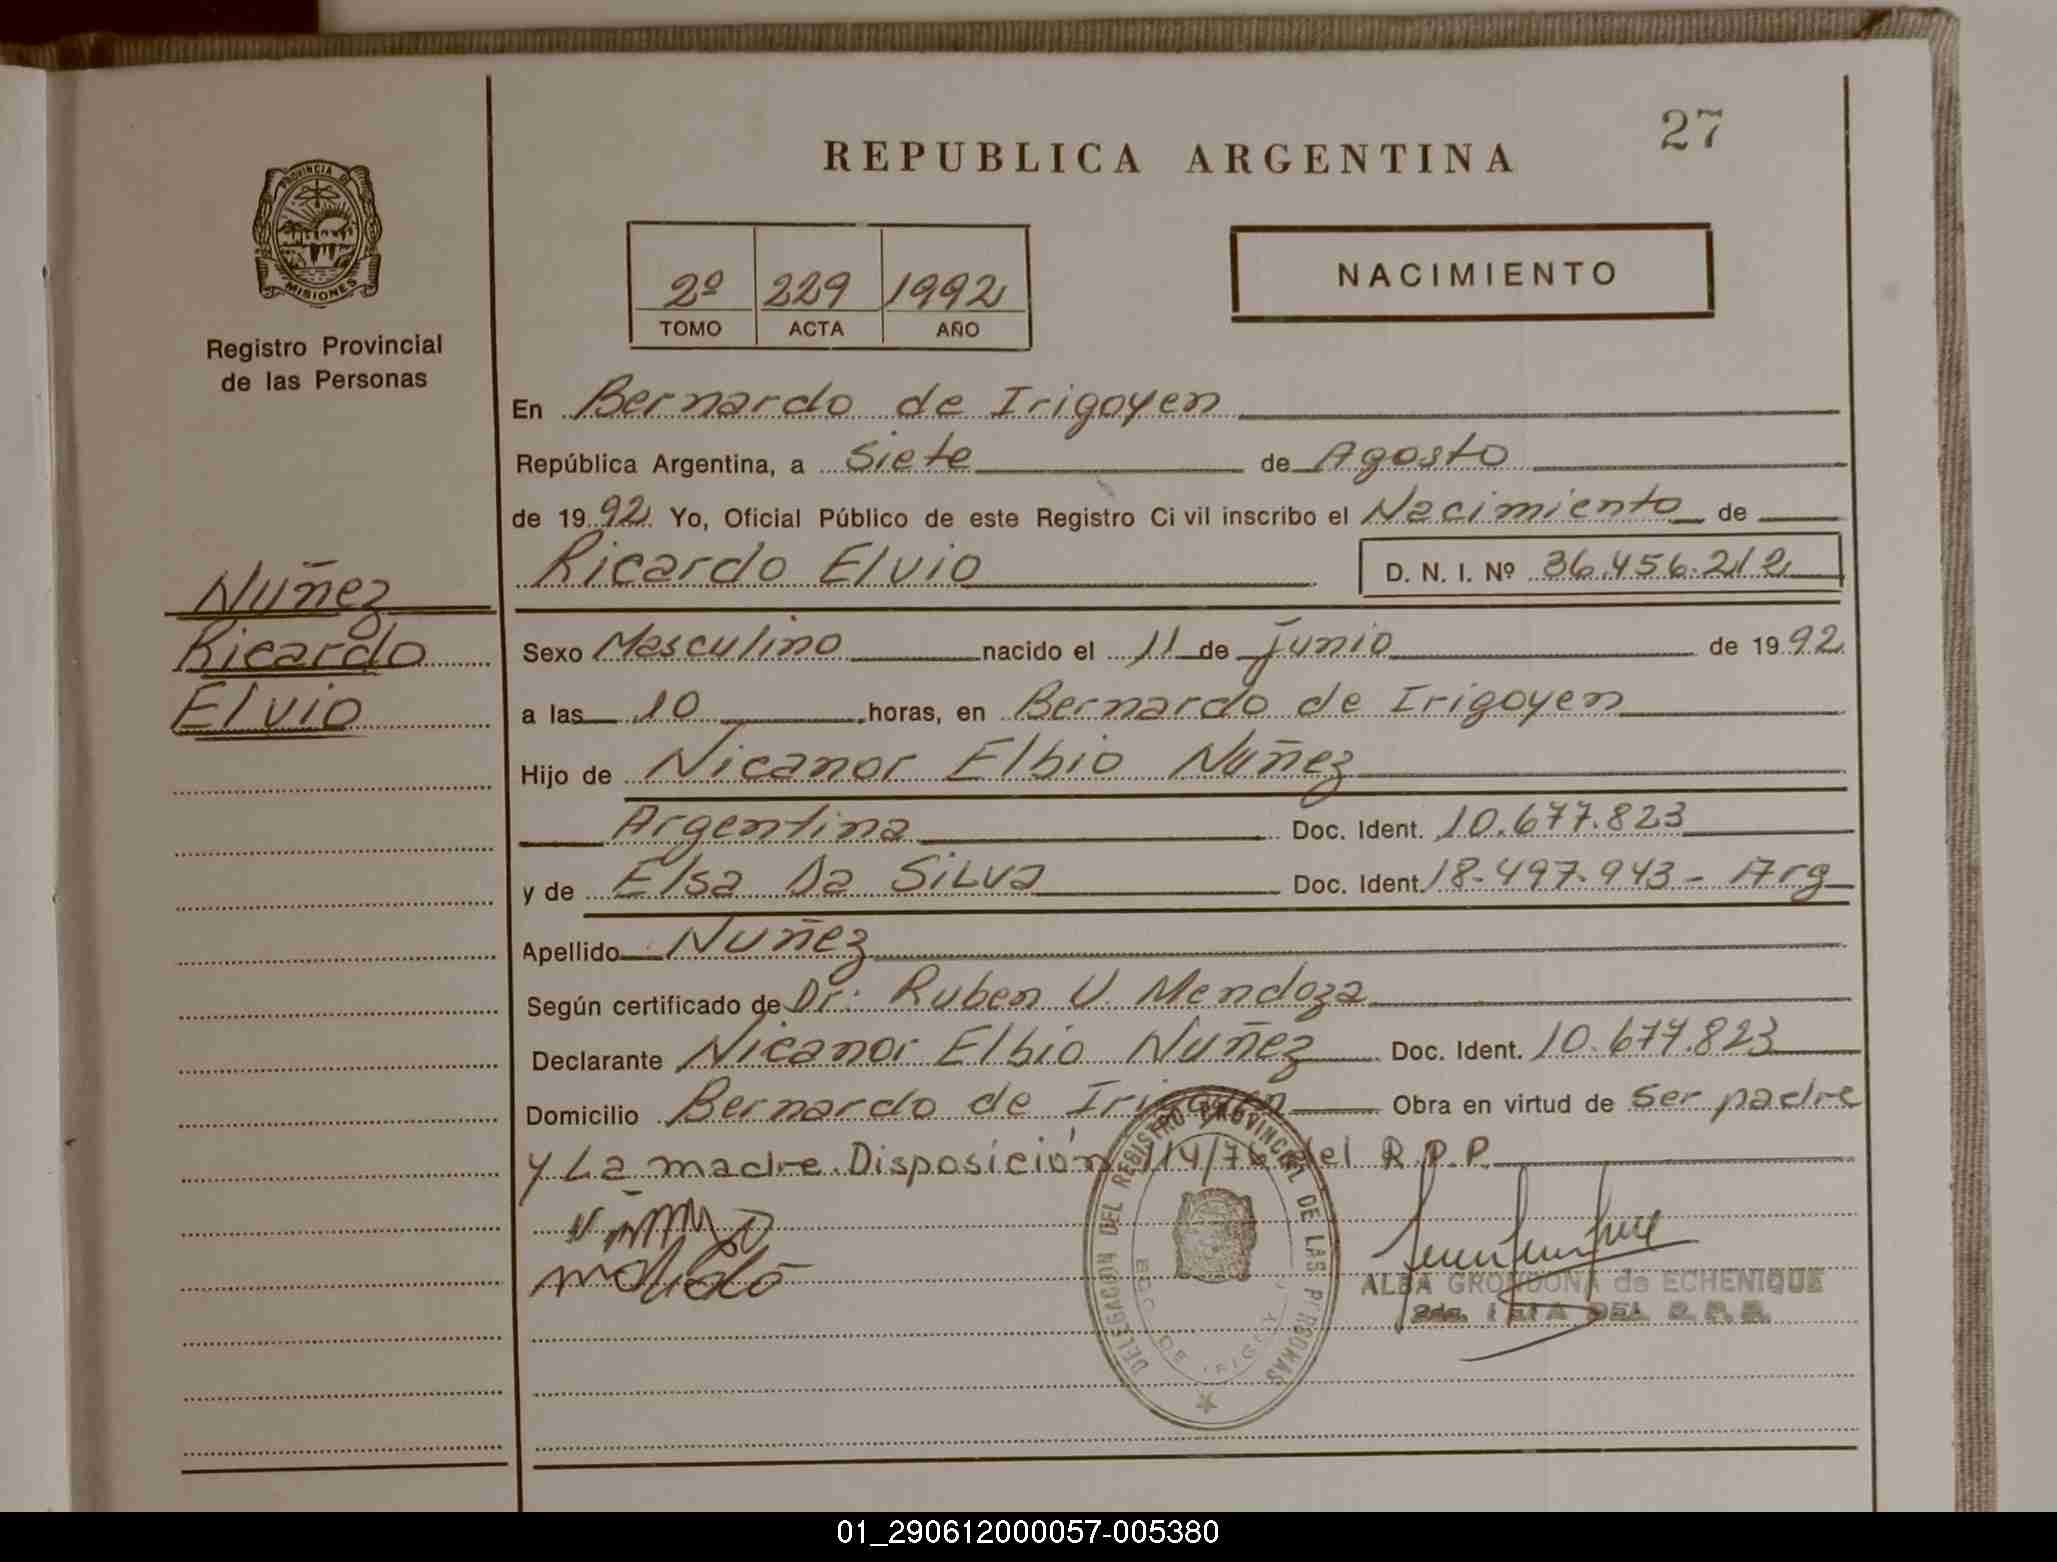 27
REPUBLICA ARGENTINA
PROVINCIA DE
MISIONES
Registro Provincial
de las Personas
2º 229 1992
TOMO ACTA AÑO
NACIMIENTO
En Bernardo de Irigoyen
República Argentina, a Siete de Agosto
de 1992 Yo, Oficial Público de este Registro Civil inscribo el Nacimiento de
Ricardo Elvio D. N. I. Nº 36.456.212
Nuñez
Ricardo
Elvio
Sexo Masculino nacido el 11 de junio de 1992
a las 10 horas, en Bernardo de Irigoyen
Hijo de Nicanor Elbio Nuñez
Argentina Doc. Ident. 10.677.823
y de Elsa Da Silva Doc. Ident. 18.497.943 - Arg
Apellido Nuñez
Según certificado de Dr: Ruben V. Mendoza
Declarante Nicanor Elbio Nuñez Doc. Ident. 10.677.823
Domicilio Bernardo de Irigoyen Obra en virtud de ser padre
y La madre. Disposición 114/76 del R.P.P.
DELEGACION DEL REGISTRO PROVINCIAL DE LAS PERSONAS
BDO. DE IRIGOYEN
ALBA GRONDONA de ECHENIQUE
DEL R.P.P.
01_290612000057-005380